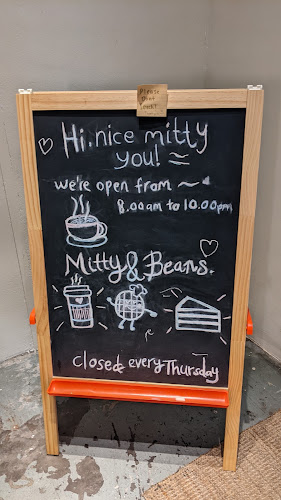 Please
Don't
Touch!
Hi, nice mitty
you!
we're open from
8.00am to 10.00pm
Mitty & Beans.
Closed every Thursday